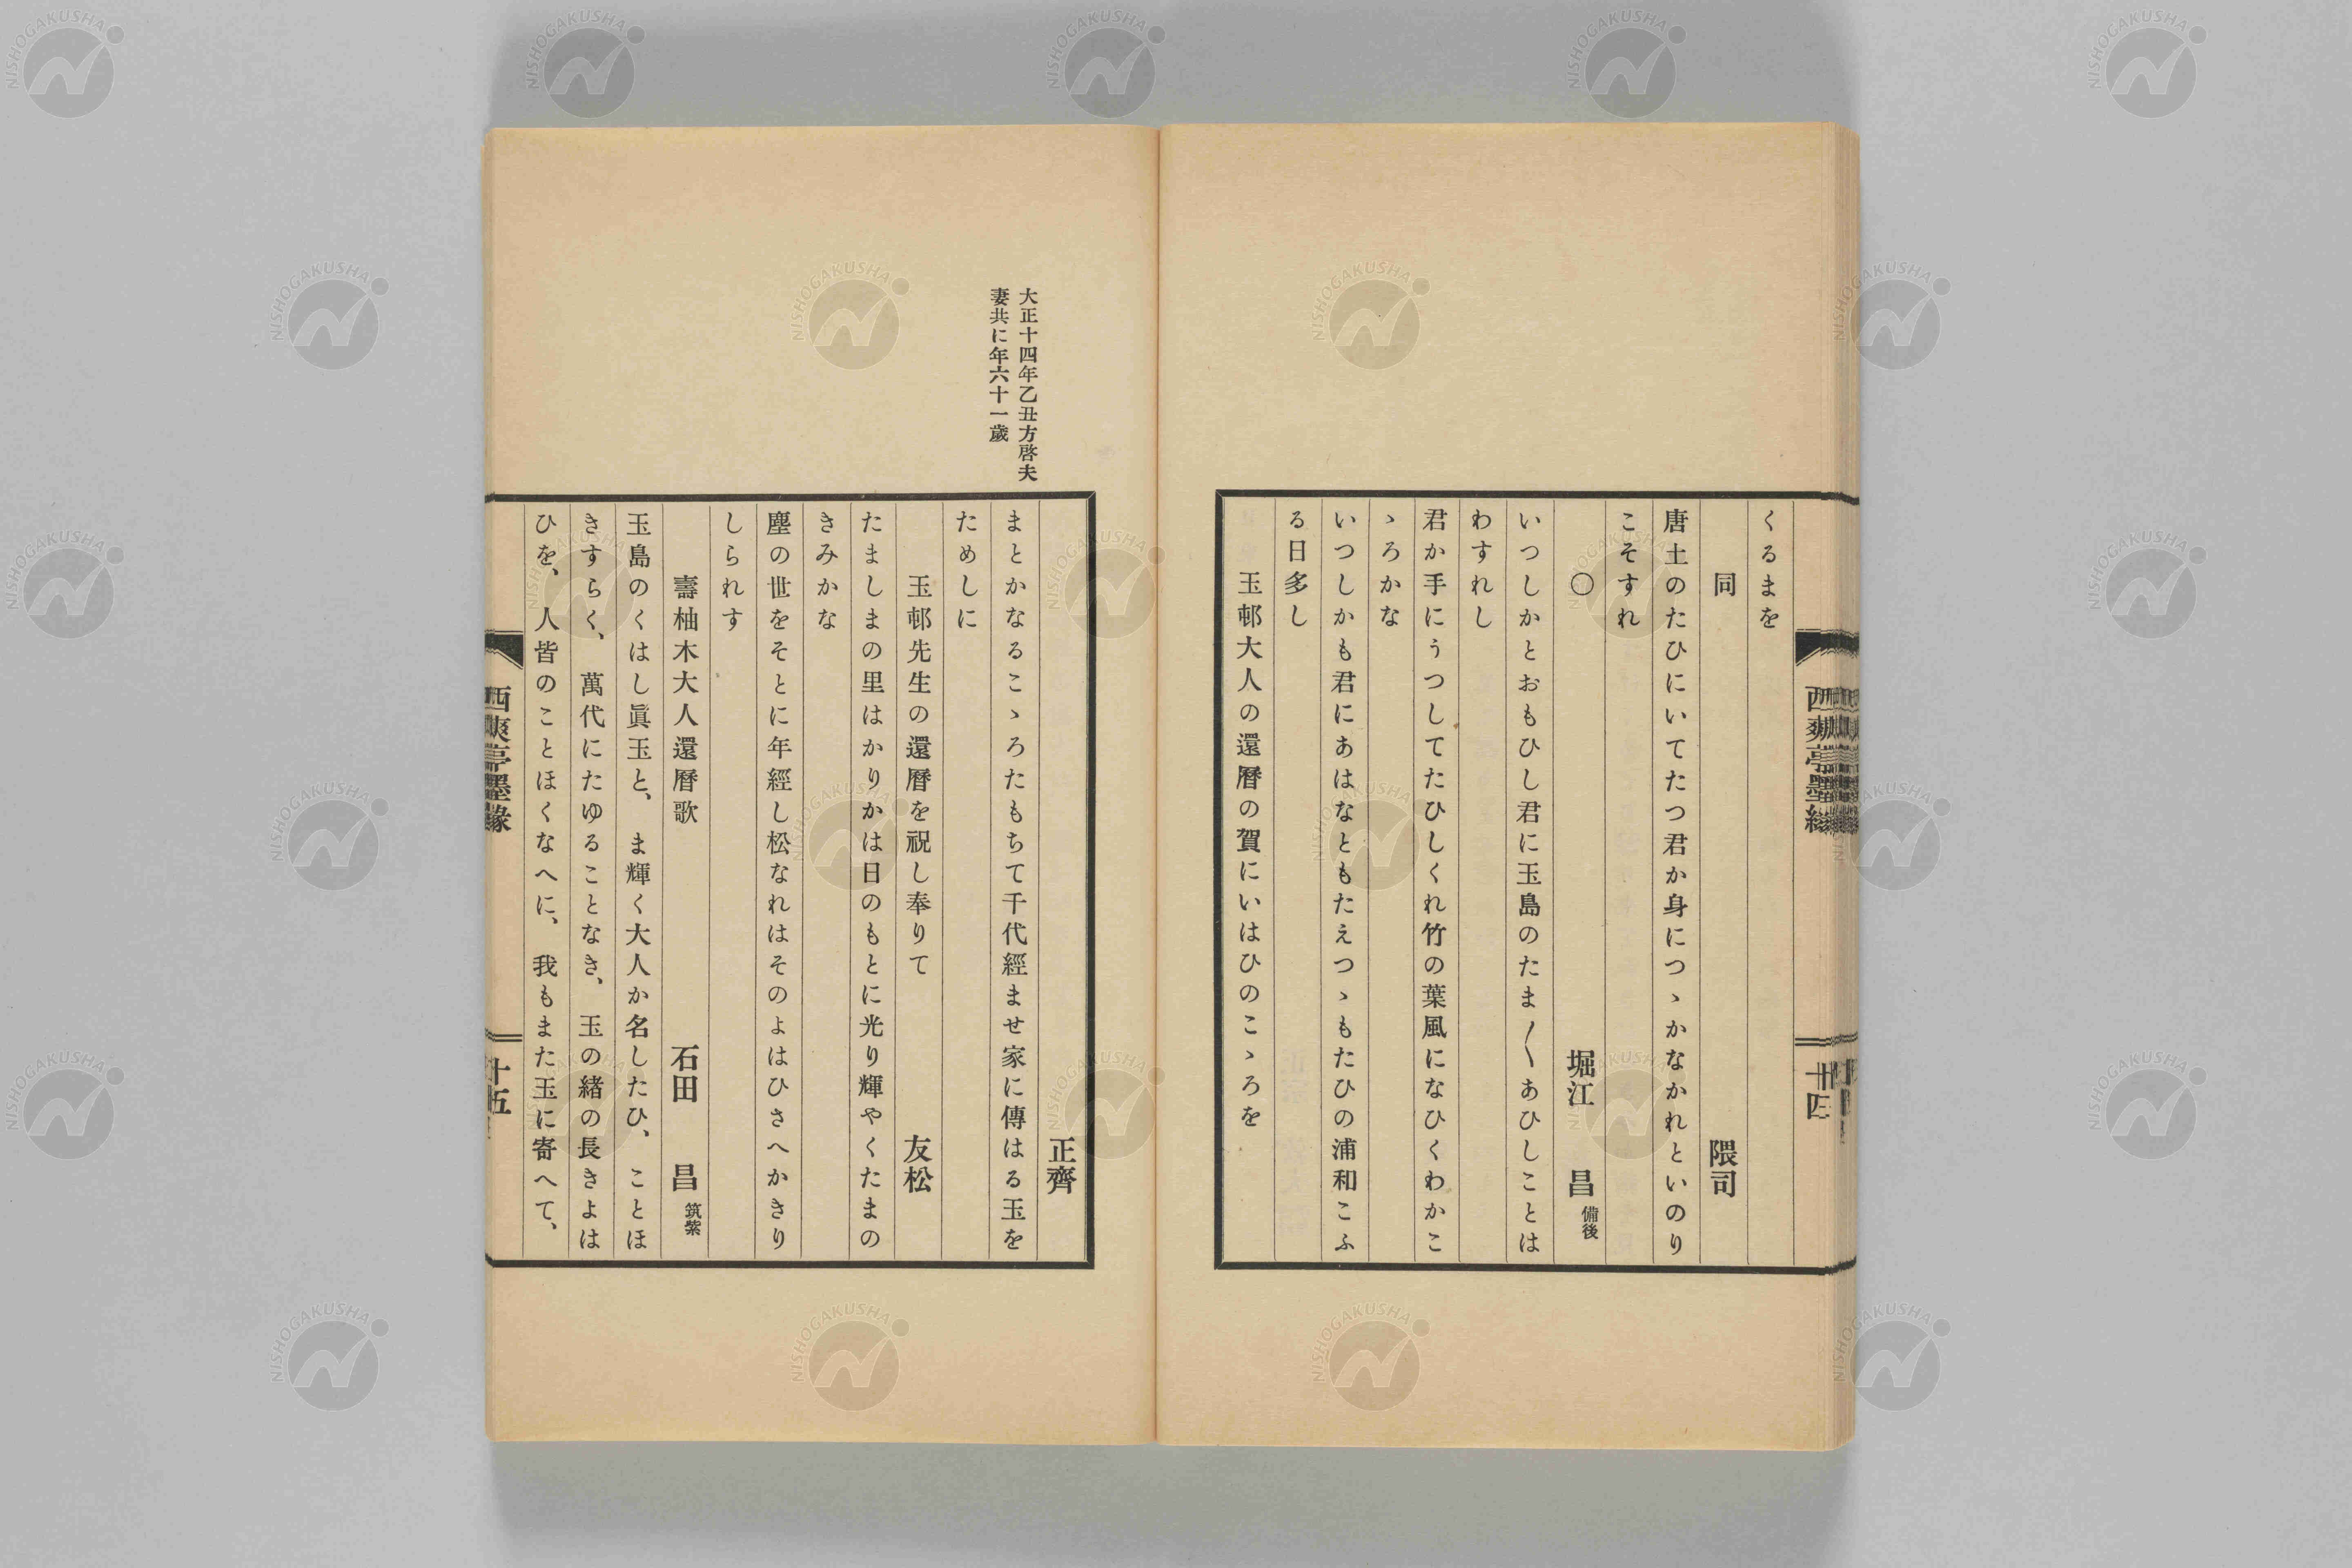 くるまを
同　隈司
唐土のたひにいてたつ君か身につゝかなかれといのり
こそすれ
〇　堀江　昌 備後
いつしかとおもひし君に玉島のたま〳〵あひしことは
わすれし
君か手にうつしてたひしくれ竹の葉風になひくわかこ
ゝろかな
いつしかも君にあはなともたえつゝもたひの浦和こふ
る日多し
玉邨大人の還曆の賀にいはひのこゝろを
西爽亭墨縁
十四
大正十四年乙丑方啓夫
妻共に年六十一歲
正齊
まとかなるこゝろたもちて千代經ませ家に傳はる玉を
ためしに
玉邨先生の還曆を祝し奉りて　友松
たましまの里はかりかは日のもとに光り輝やくたまの
きみかな
塵の世をそとに年經し松なれはそのよはひさへかきり
しられす
壽柚木大人還曆歌　石田　昌 筑紫
玉島のくはし眞玉と、ま輝く大人か名したひ、ことほ
きすらく、萬代にたゆることなき、玉の緒の長きよは
ひを、人皆のことほくなへに、我もまた玉に寄へて、
西爽亭墨縁
十五
NISHOGAKUSHA